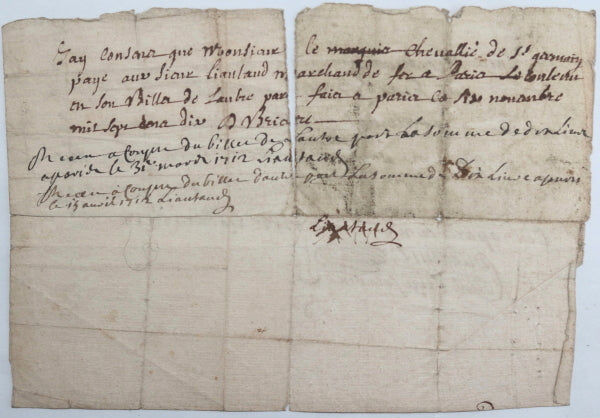 Jay consans que Monsieur le marquis Chevallié de St germain
paye aux sieur Liautaud marchand de fer a Paris le contenu
en son Billet de Lautre par faict a paris ce novanbre
mil sept cens dix
Receu a Compte du billet de Lautre part La somme de dix Livre
a paris le 31e mars 1712 Liautaud
Receu a Compte du billet dautre part La somme de Dix Livre a paris
le 15 avril 1712 Liautaud
Liautaud